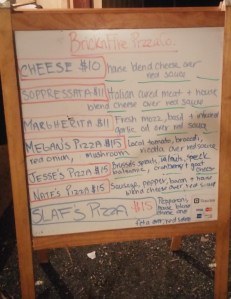 Brickafire Pizza's
CHEESE $10 house blend cheese over
red sauce
SOPPRESSATA $11 Italian cured meat + house
blend cheese over red sauce
MARGHERITA $11 Fresh mozz, basil + infused
garlic oil over red sauce
MEGAN'S PIZZA $15 local tomato, broccoli,
red onion, mushroom over red sauce
JESSE'S PIZZA $15 Brussels sprouts, speck
cranberry + goat cheese
NATE'S PIZZA $15 Sausage, pepper, bacon + house
cheese over red sauce
SLAF'S PIZZA $15 Pepperoni,
feta over red sauce